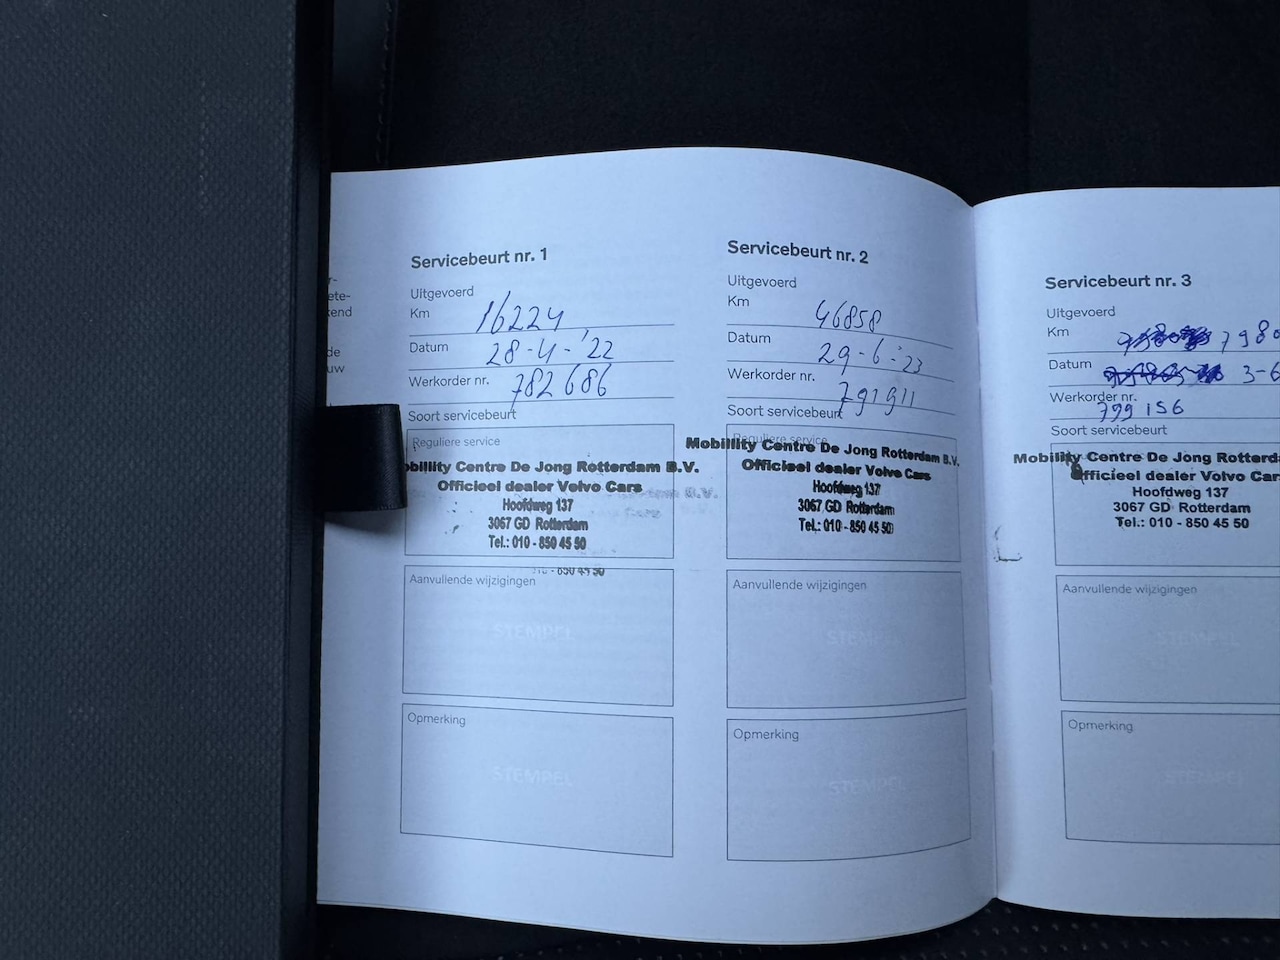 r-
ete-
kend
de
uw
Servicebeurt nr. 1
Uitgevoerd
Km 16224
Datum 28-4-'22
Werkorder nr. 782686
Soort servicebeurt
Reguliere service
obillity Centre De Jong Rotterdam B.V.
Officieel dealer Volvo Cars
Hoofdweg 137
3067 GD Rotterdam
Tel.: 010 - 850 45 50
Aanvullende wijzigingen
STEMPEL
Opmerking
STEMPEL
Servicebeurt nr. 2
Uitgevoerd
Km 46858
Datum 29-6-'23
Werkorder nr. 791911
Soort servicebeurt
Reguliere service
Mobillity Centre De Jong Rotterdam B.V.
Officieel dealer Volvo Cars
Hoofdweg 137
3067 GD Rotterdam
Tel.: 010 - 850 45 50
Aanvullende wijzigingen
STEMPEL
Opmerking
STEMPEL
Servicebeurt nr. 3
Uitgevoerd
Km 798
Datum 3-6
Werkorder nr.
799156
Soort servicebeurt
Mobility Centre De Jong Rotterda
Officieel dealer Volvo Car
Hoofdweg 137
3067 GD Rotterdam
Tel.: 010 - 850 45 50
Aanvullende wijzigingen
STEMPEL
Opmerking
STEMPEL